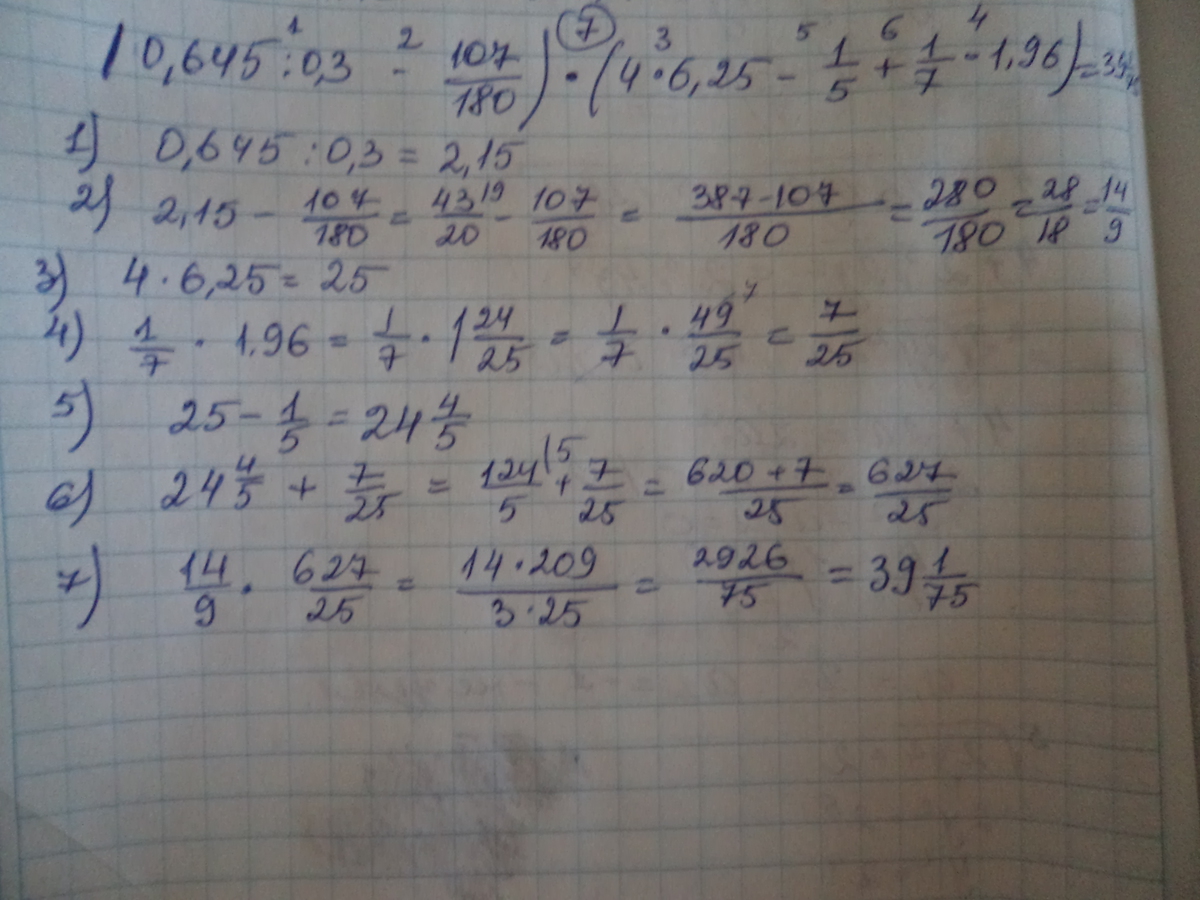 (0,645 : 0,3 - 107/180) · (4 · 6,25 - 1/5 + 1/7 · 1,96) = 39
1) 0,645 : 0,3 = 2,15
2) 2,15 - 107/180 = 43/20 - 107/180 = 387-107/180 = 280/180 = 28/18 = 14/9
3) 4 · 6,25 = 25
4) 1/7 · 1.96 = 1/7 · 1 24/25 = 1/7 · 49/25 = 7/25
5) 25 - 1/5 = 24 4/5
6) 24 4/5 + 7/25 = 124/5 + 7/25 = 620+7/25 = 627/25
7) 14/9 · 627/25 = 14·209/3·25 = 2926/75 = 39 1/75